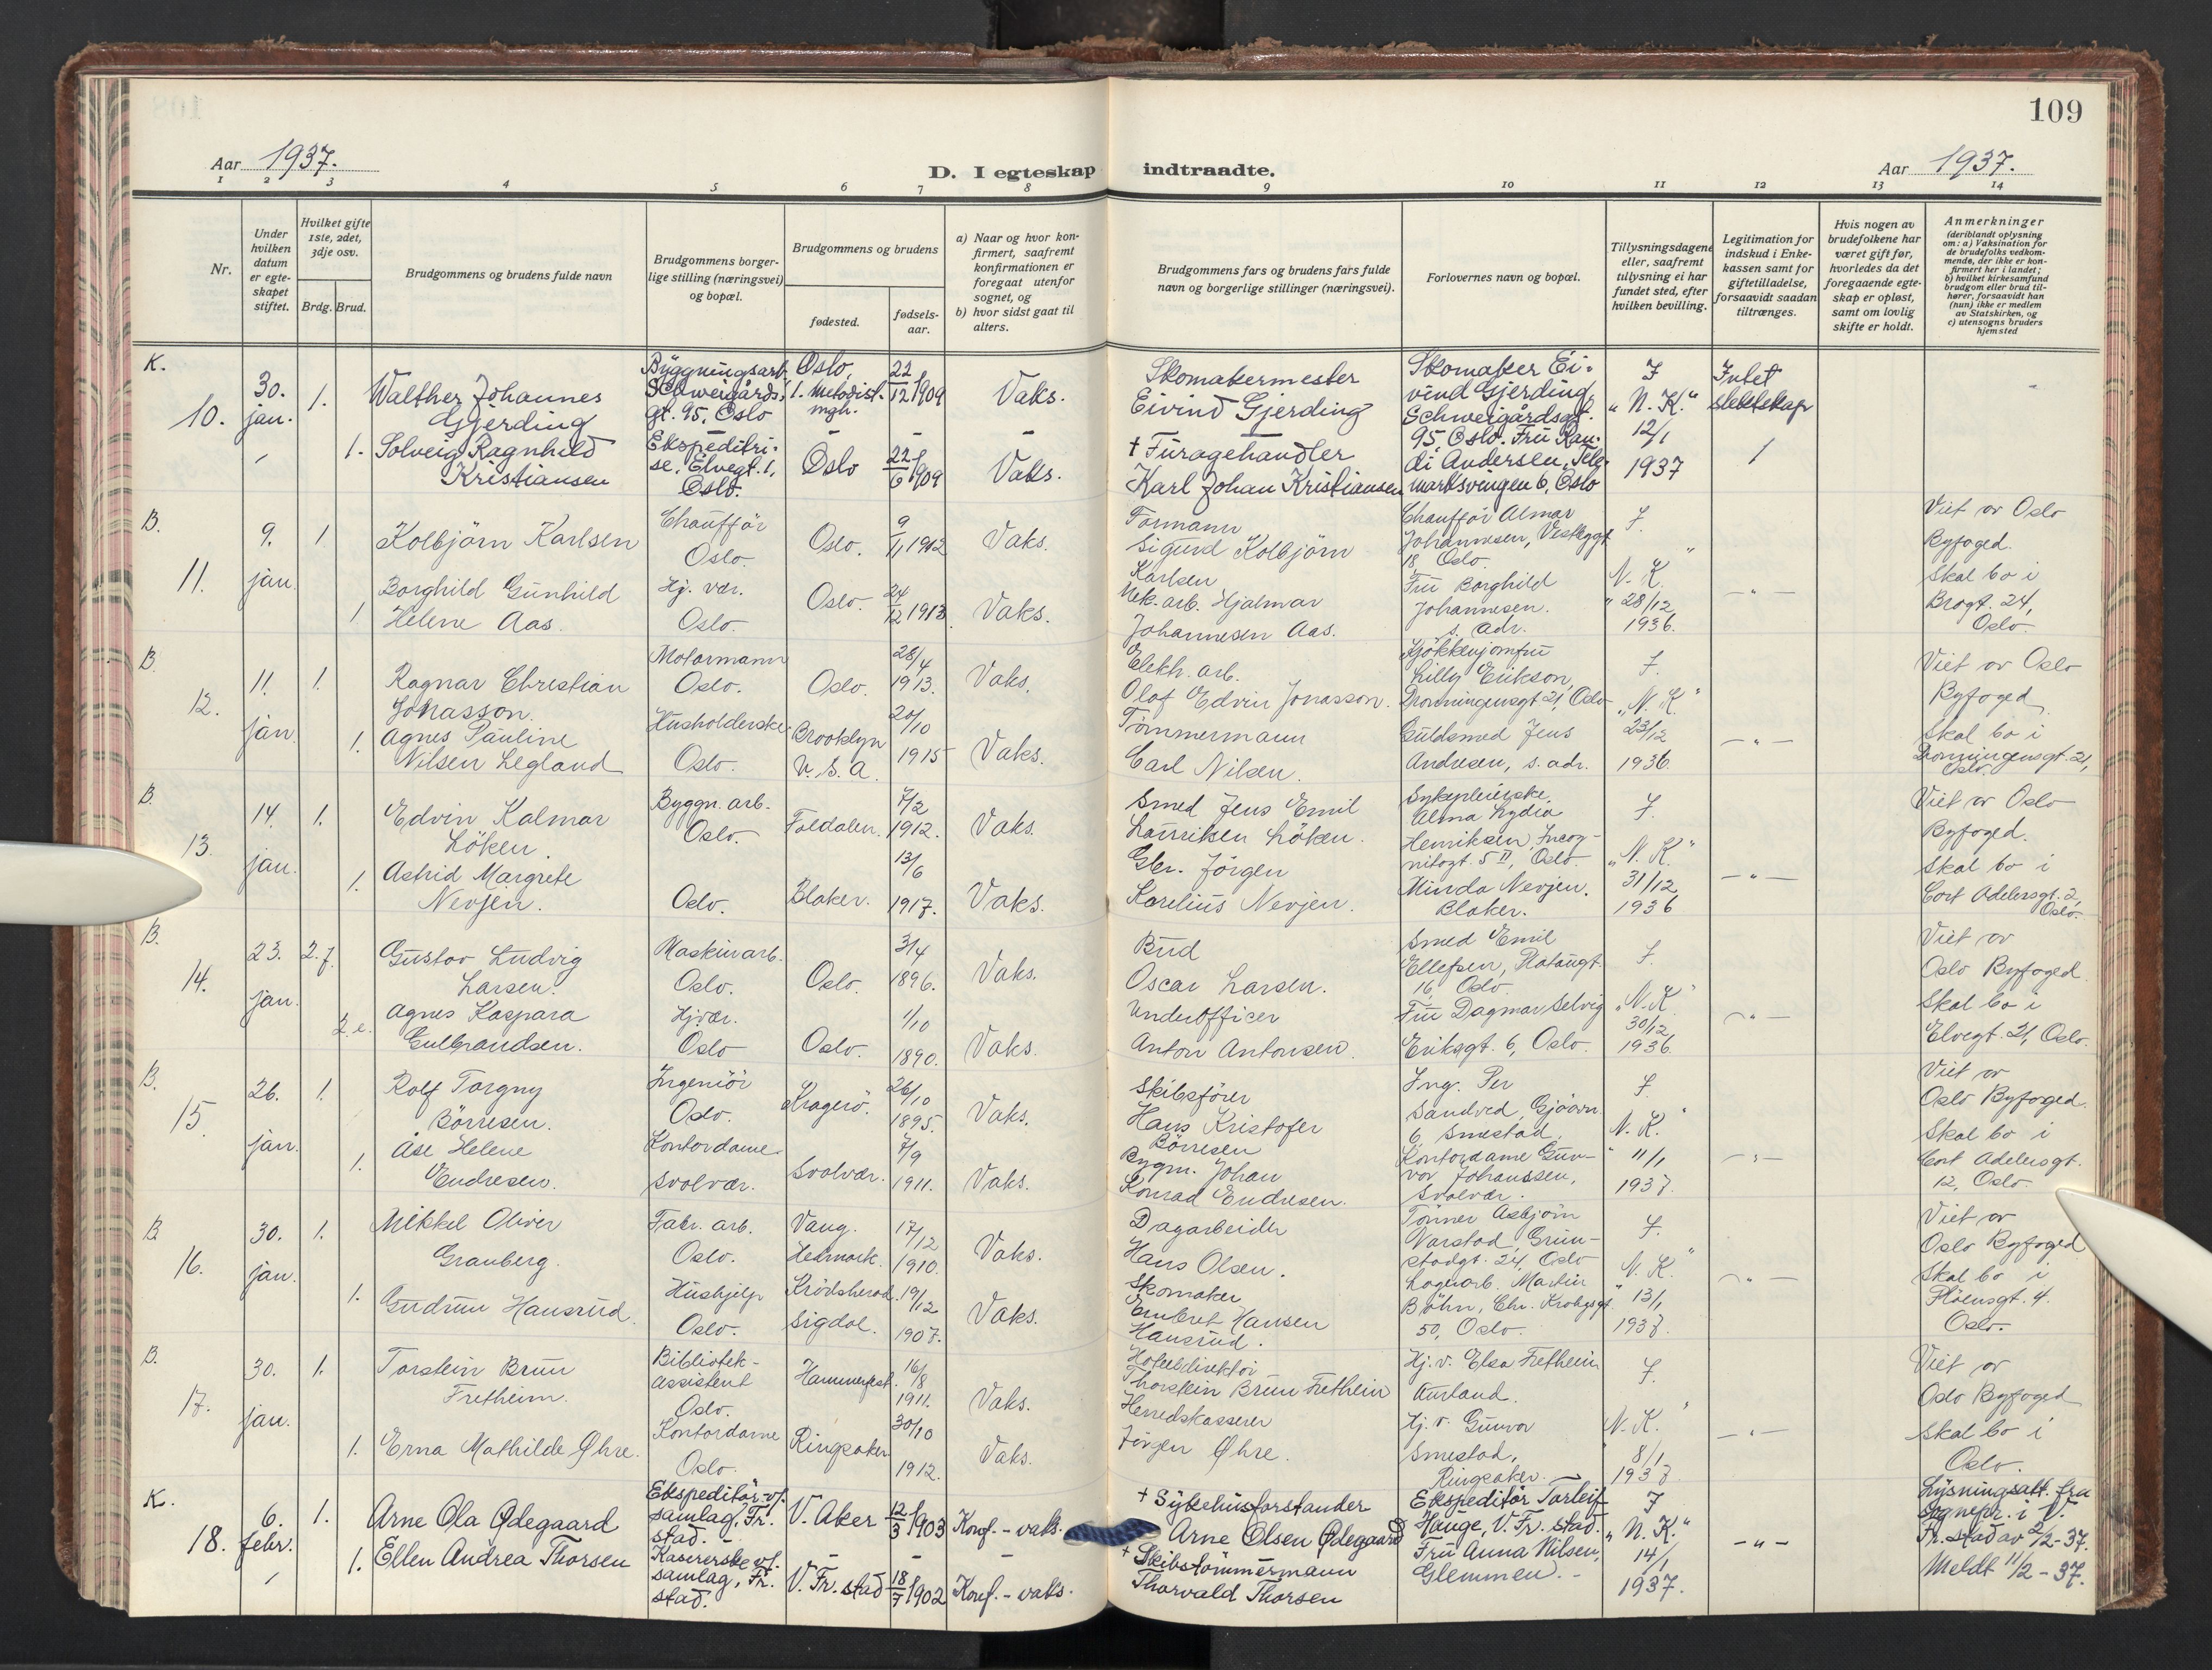 109
Aar 1937.
D. I egteskap indtraadte.
Aar 1937.
1 2 3 4 5 6 7 8 9 10 11 12 13 14
Nr.
Under hvilken datum er egte-skapet stiftet.
Hvilket gifte 1ste, 2det, 3dje osv.
Brdg. Brud.
Brudgommens og brudens fulde navn
Brudgommens borger-lige stilling (næringsvei) og bopæl.
Brudgommens og brudens
fødested.
fødsels-aar.
a) Naar og hvor kon-firmert, saafremt konfirmationen er foregaat utenfor sognet, og
b) hvor sidst gaat til alters.
Brudgommens fars og brudens fars fulde navn og borgerlige stillinger (næringsvei).
Forlovernes navn og bopæl.
Tillysningsdagene eller, saafremt tillysning ei har fundet sted, efter hvilken bevilling.
Legitimation for indskud i Enke-kassen samt for giftetilladelse, forsaavidt saadan tiltrænges.
Hvis nogen av brudefolkene har været gift før, hvorledes da det foregaaende egte-skap er opløst, samt om lovlig skifte er holdt.
Anmerkninger (deriblandt oplysning om: a) Vaksination for de brudefolks vedkom-mende, der ikke er kon-firmert her i landet; b) hvilket kirkesamfund brudgom eller brud til-hører, forsaavidt han (hun) ikke er medlem av Statskirken, og c) utensogns bruders hjemsted
K.
10. 30. jan. 1. Walther Johannes Gjerding
Byggningsarb. Schweigårds-gt. 95, Oslo
Oslo, 1. Metodist. mgh. 22/12 1909 Vaks.
Skomakermester Eivind Gjerding
Skomaker Ei-vind Gjerding, Schweigårdsgt. 95 Oslo. Fru Ran-di Andersen, Tele-marksvingen 6, Oslo
F „N.K.“ 12/1 1937
Intet slektskap
1. Solveig Ragnhild Kristiansen
Ekspeditri-se, Elvegt. 1, Oslo.
Oslo 22/6 1909 Vaks.
+ Furagehandler Karl Johan Kristiansen
B.
11. 9. jan. 1 Kolbjörn Karlsen
Chaufför Oslo.
Oslo. 9/11 1912 Vaks.
Formann Sigurd Kolbjörn Karlsen
Chaufför Almar Johannesen, 18 Oslo.
Fru Borghild Johannesen. s. adr.
F. „N.K.“ 28/12 1936.
Viet av Oslo Byfoged. Skal bo i Brogt. 24, Oslo.
1 Borghild Gunhild Helene Aas.
Hj. vær. Oslo.
Oslo. 24/12 1913. Vaks.
Mek. arb. Hjalmar Johannesen Aas.
B.
12. 11. jan. 1. Ragnar Christian Jonasson.
Motormann Oslo.
Oslo. 28/4 1913. Vaks.
Elektr. arb. Olof Edvin Jonasson.
Kjökkenjomfru Lilly Erikson, Dronningensgt 21, Oslo
Guldsmed Jens Andresen, s. adr.
F. „N.K.“ 23/12 1936.
Viet av Oslo Byfoged. Skal bo i Dronningensgt. 21, Oslo.
1. Agnes Pauline Nilsen Legland
Husholderske Oslo.
Brooklyn U.S.A. 20/10 1915 Vaks.
Tömmermann Carl Nilsen.
B.
13. 14. jan. 1. Edvin Kalmar Löken.
Byggn. arb. Oslo.
Foldalen. 7/2 1912. Vaks.
Smed Jens Emil Lauritsen Löken.
Sykepleierske Alma Lydia Henriksen, Incog-nitogt. 5 II, Oslo.
Minda Nevjen. Blaker.
F. „N.K.“ 31/12 1936
Viet av Oslo Byfoged. Skal bo i Cort Adelersgt. 2, Oslo.
1. Astrid Margrete Nevjen.
Oslo.
Blaker. 13/6 1917. Vaks.
Gbr. Jörgen Karelius Nevjen.
B.
14. 23. jan. 2. f. Gustav Ludvig Larsen.
Maskinarb. Oslo.
Oslo. 3/4 1896. Vaks.
Bud Oscar Larsen.
Smed Emil Ellefsen, Platougt. 16, Oslo.
Fru Dagmar Selvig Eriksgt. 6, Oslo.
F. „N.K“ 30/12 1936.
Viet av Oslo Byfoged Skal bo i Elvegt. 21, Oslo.
2. e. Agnes Kaspara Gulbrandsen.
Hj.vær. Oslo
Oslo. 1/10 1890. Vaks.
Underofficer Anton Antonsen.
B.
15. 26. jan. 1. Rolf Torgny Börresen.
Ingeniör Oslo.
Kragerö. 26/10 1895. Vaks.
Skibsförer Hans Kristofer Börresen
Ing. Per Sandved, 6, Smestad.
Kontordame Gun-vor Johanssen, Svolvær.
F. „N.K.“ 11/1 1937.
Viet av Oslo Byfoged. Skal bo i Cort Adelersgt. 12, Oslo
1. Åse Helene Endresen.
Kontordame Svolvær.
Svolvær. 7/9 1911. Vaks.
Bygm. Johan Konrad Endresen.
B
16. 30. jan. 1. Mikkel Oliver Granberg.
Fabr. arb. Oslo.
Vang. Hedmark. 17/12 1910. Vaks.
Dagarbeider Hans Olsen.
Tömmer Asbjörn Narstad, Grün-stadgt. 24, Oslo
Lagerarb. Martin Böhn, Chr. Krohgsgt. 50, Oslo.
F. „N.K.“ 13/1 1937.
Viet av Oslo Byfoged Skal bo i Flöiensgt. 4. Oslo.
1. Gudrun Hansrud.
Hushjelp Oslo.
Krödsherad, Sigdal. 19/12 1907. Vaks.
Skomaker Embret Hansen Hansrud.
B.
17. 30. jan. 1. Torstein Brun Fretheim.
Bibliotek-assistent Oslo.
Hammerfest. 16/8 1911. Vaks.
Hotelldirektör Thorstein Brun Fretheim
Hj. v. Elsa Fretheim Aurland.
Hj. v. Gunvor Smestad, Ringsaker.
F. „N.K.“ 8/1 1937.
Viet av Oslo Byfoged Skal bo i Oslo.
1. Erna Mathilde Øhre.
Kontordame Oslo.
Ringsaker. 30/10 1912. Vaks.
Herredskasserer Jörgen Øhre.
K.
18. 6. febr. 1. Arne Ola Ødegaard
Ekspeditör v/. samlag, Fr. stad.
V. Aker 12/3 1903 Konf. - vaks.
+ Sykehusforstander Arne Olsen Ødegaard
Ekspeditör Torleif Hauge, V. Fr. stad.
Fru Anna Nilsen, Glemmen.
F „N.K.“ 14/1 1937.
Lysningsatt. fra Sognepr. i V. Fr. stad av 2/2-37. Meldt 11/2-37.
1. Ellen Andrea Thorsen
Kasererske v/. samlag, Fr. stad.
V. Fr. stad 18/7 1902 Konf. - vaks.
+ Skibstömmermann Thorvald Thorsen